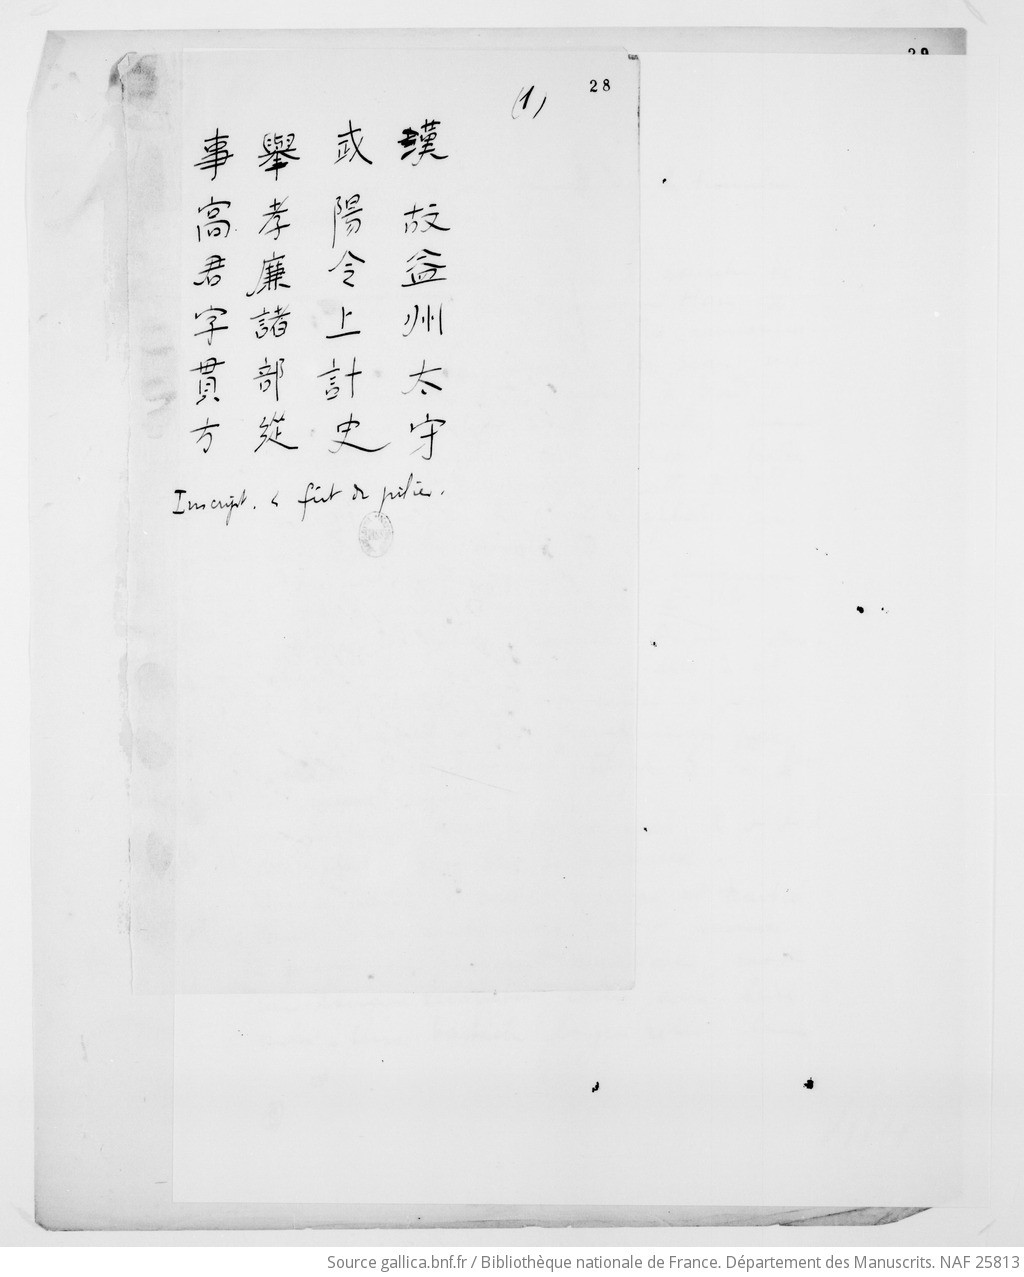 28
(1)
漢故益州太守
武陽令上計史
舉孝廉諸部從
事高君字貫方
Inscript. fût de pilier.
29
Source gallica.bnf.fr / Bibliothèque nationale de France. Département des Manuscrits. NAF 25813